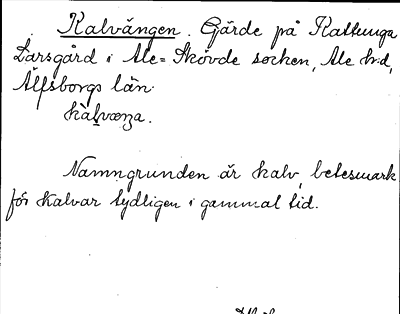 Kalvängen. Gärde på Kattunga
Larsgård i Ale-Skövde socken, Ale hd,
Älfsborgs län.
kalvæŋa.
Namngrunden är kalv, betesmark
för kalvar tydligen i gammal tid.